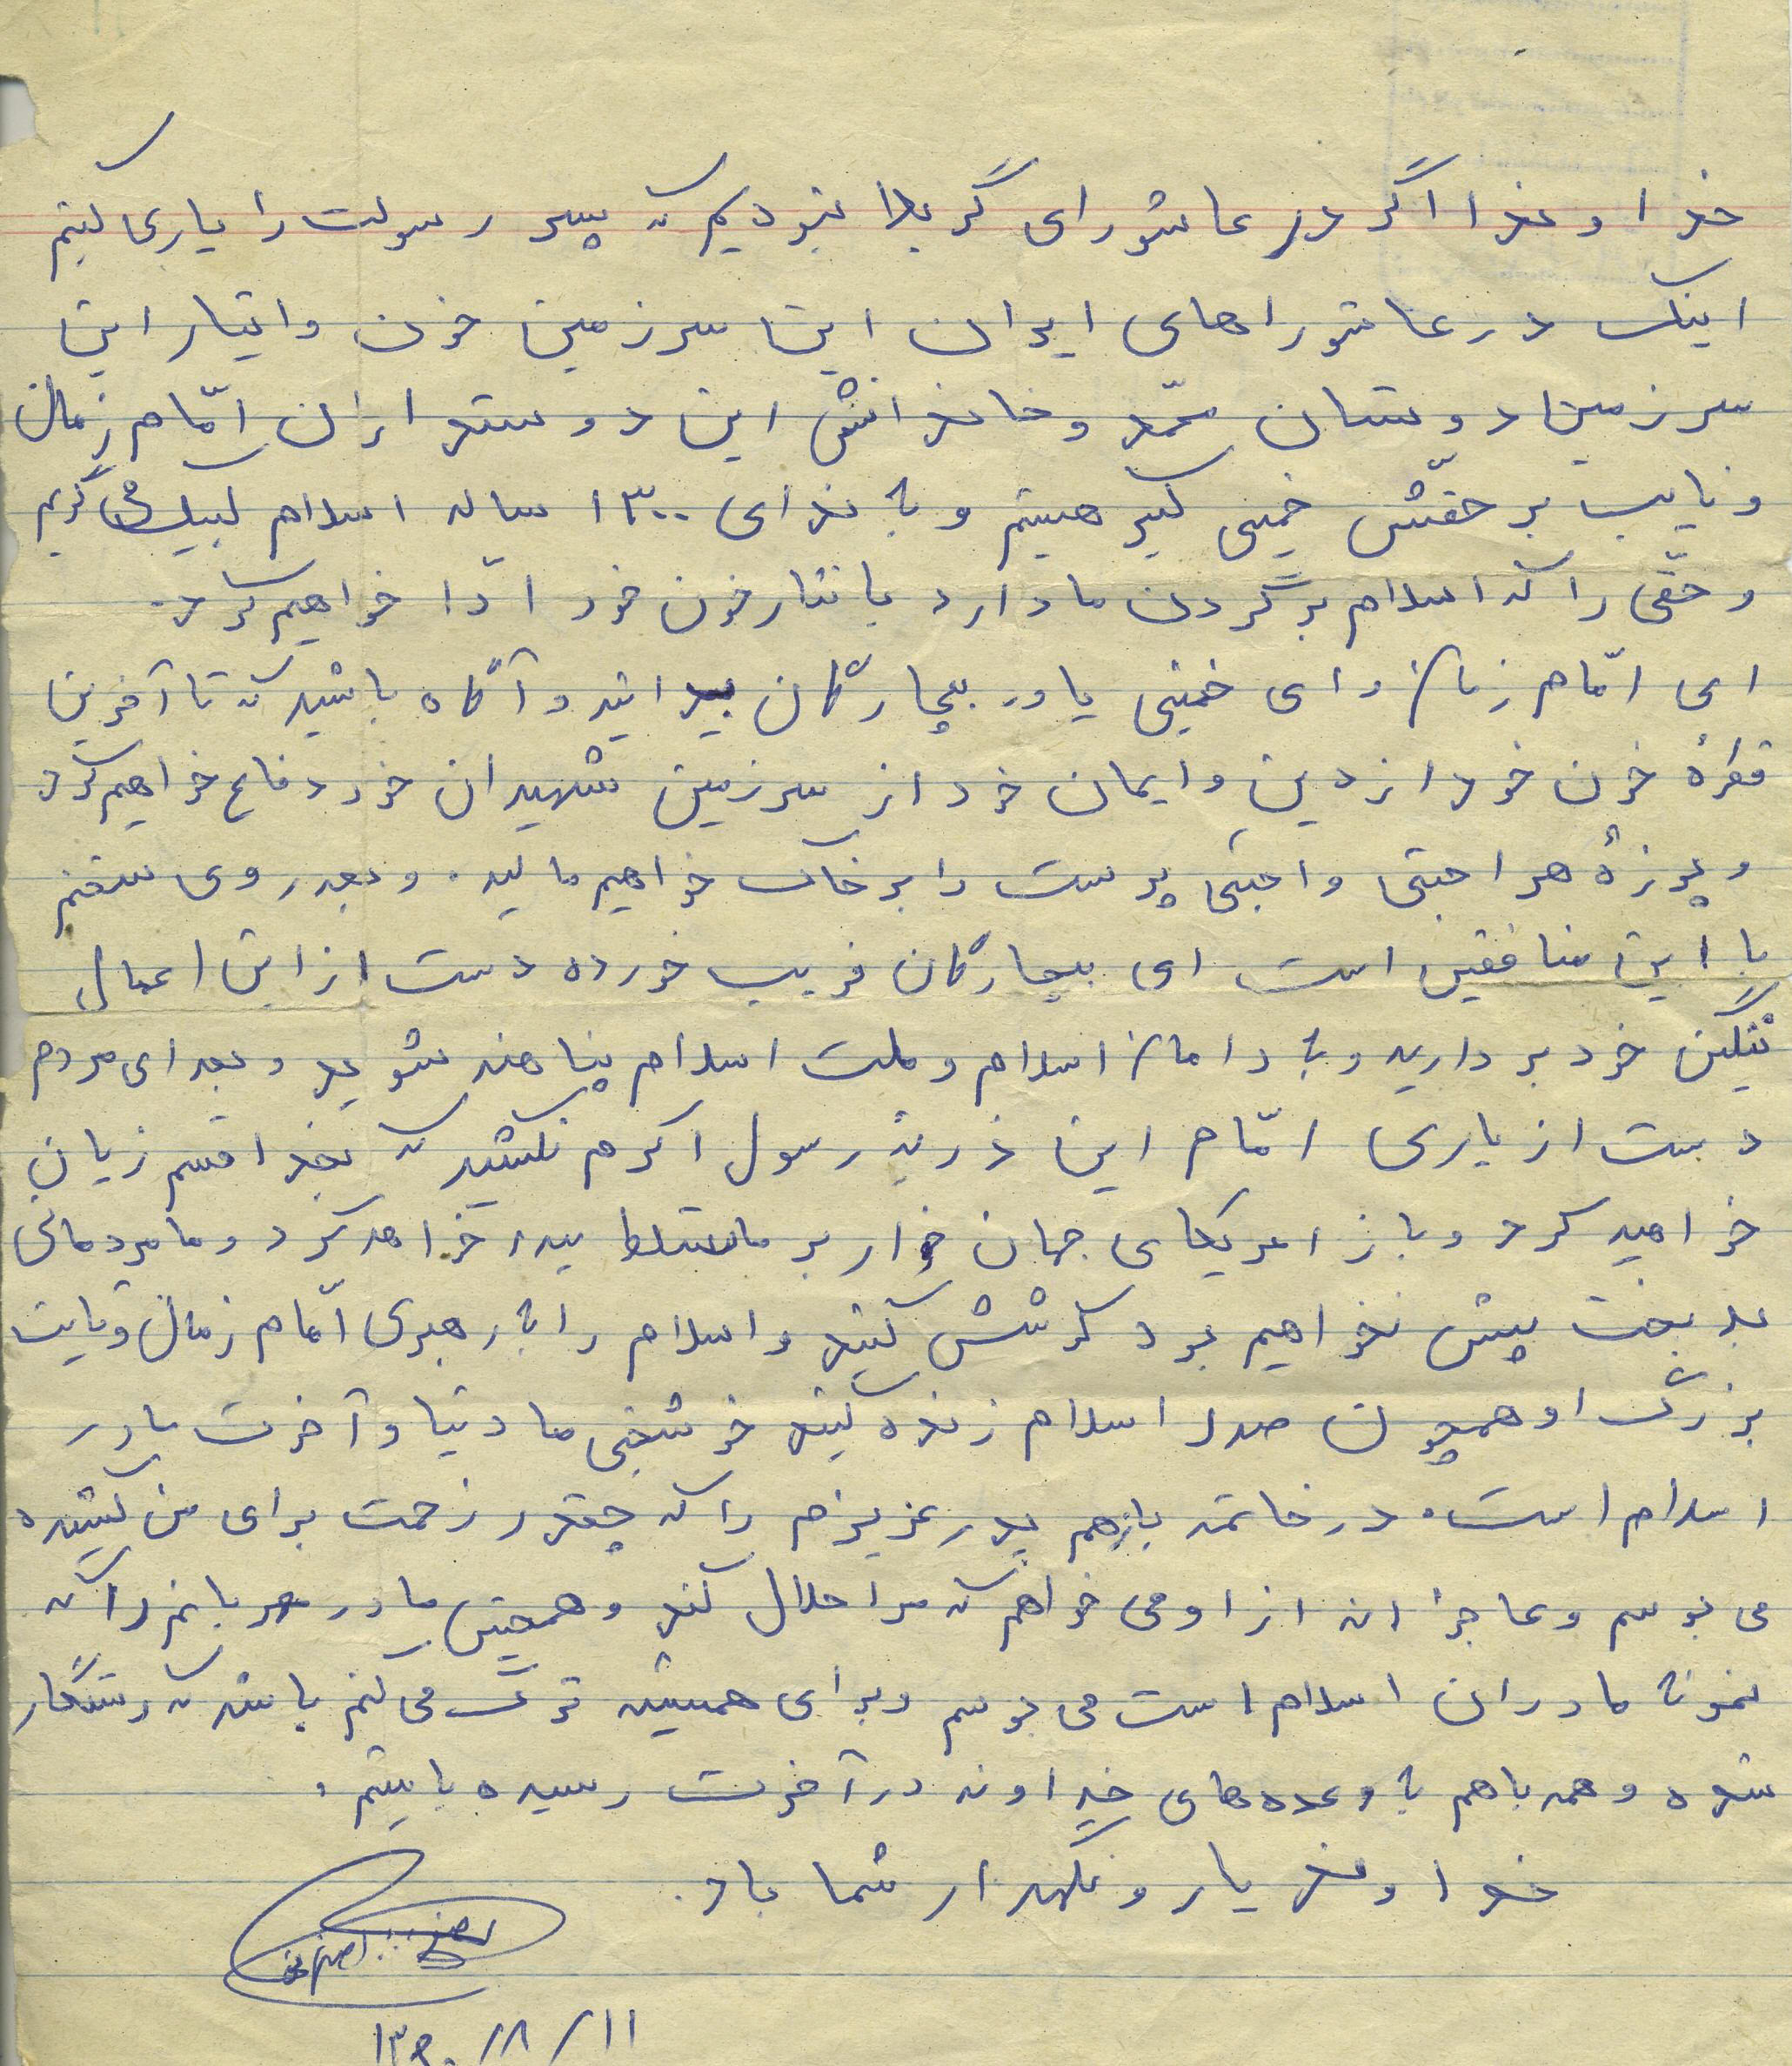 خداوندا اگر در عاشورای کربلا نبودیم که پسر رسولت را یاری کنیم
اینک در عاشوراهای ایران این سرزمین خون و ایثار این
سرزمین دوستان محمّد و خاندانش این دوستداران امّام زمان
و نایب بر حقّش خمینی کبیر هستیم و به ندای ۱۳۰۰ ساله اسلام لبیک می گویم
و حقّی را که اسلام بر گردن ما دارد با نثار خون خود ادّا خواهیم کرد.
ای امّام زمان و ای خمینی یاور بیچارگان بدانید و آگاه باشید که تا آخرین
قطرۀ خون خود از دین و ایمان خود از سرزمین شهیدان خود دفاع خواهیم کرد
و پوزۀ هر اجنبی و اجنبی پرست را بر خاک خواهیم مالید. و بعد روی سخنم
با این منافقین است ای بیچارگان فریب خورده دست از این اعمال
ننگین خود بردارید و به دامان اسلام و ملت اسلام پناهنده شوید و بعد ای مردم
دست از یاری امّام این ذریۀ رسول اکرم نکشید که بخدا قسم زیان
خواهید کرد و باز امریکای جهان خوار بر ما تسلط پیدا خواهد کرد و ما مردمانی
بدبخت بیش نخواهیم بود کوشش کنید و اسلام را به رهبری امّام زمان و نایب
بزرگ او همچون صدر اسلام زنده کنید خوشبختی ما دنیا و آخرت یاور
اسلام است. در خاتمه بازهم پدر عزیزم را که چقدر زحمت برای من کشیده
می بوسم و عاجزانه از او می خواهم که مرا حلال کند و همچنین مادر مهربانم را که
نمونۀ مادران اسلام است می بوسم و برای همیشه ترک می کنم باشد که رستگار
شده و همه باهم به وعده های خداوند در آخرت رسیده باشیم.
خداوند یار و نگهدار شما باد.
۱۳۶۰/۸/۱۱